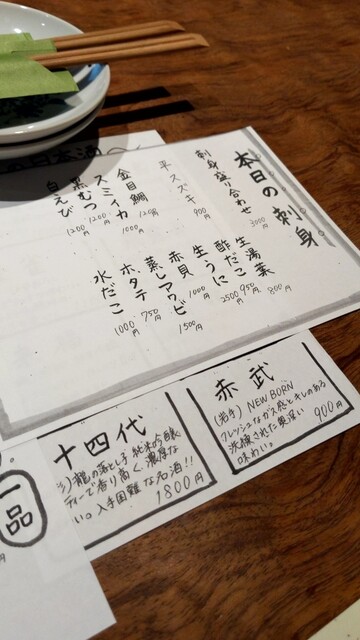 本日の刺身
刺身盛り合わせ 3000円
平スズキ 900円
金目鯛 1200円
スミイカ 1000円
黒むつ 1200円
白えび 1200円
生湯葉 800円
酢だこ 950円
生うに 2500円
赤貝 1000円
蒸しアワビ 1500円
ホタテ 750円
水だこ 1000円
日本酒
赤武
(岩手) NEW BORN
フレッシュなガス感とキレのある
洗練された奥深い
味わい。
900円
十四代
龍の落とし子 純米吟醸
ティーで香り高く、濃厚な
い。入手困難な名酒!!
1800円
一品
円